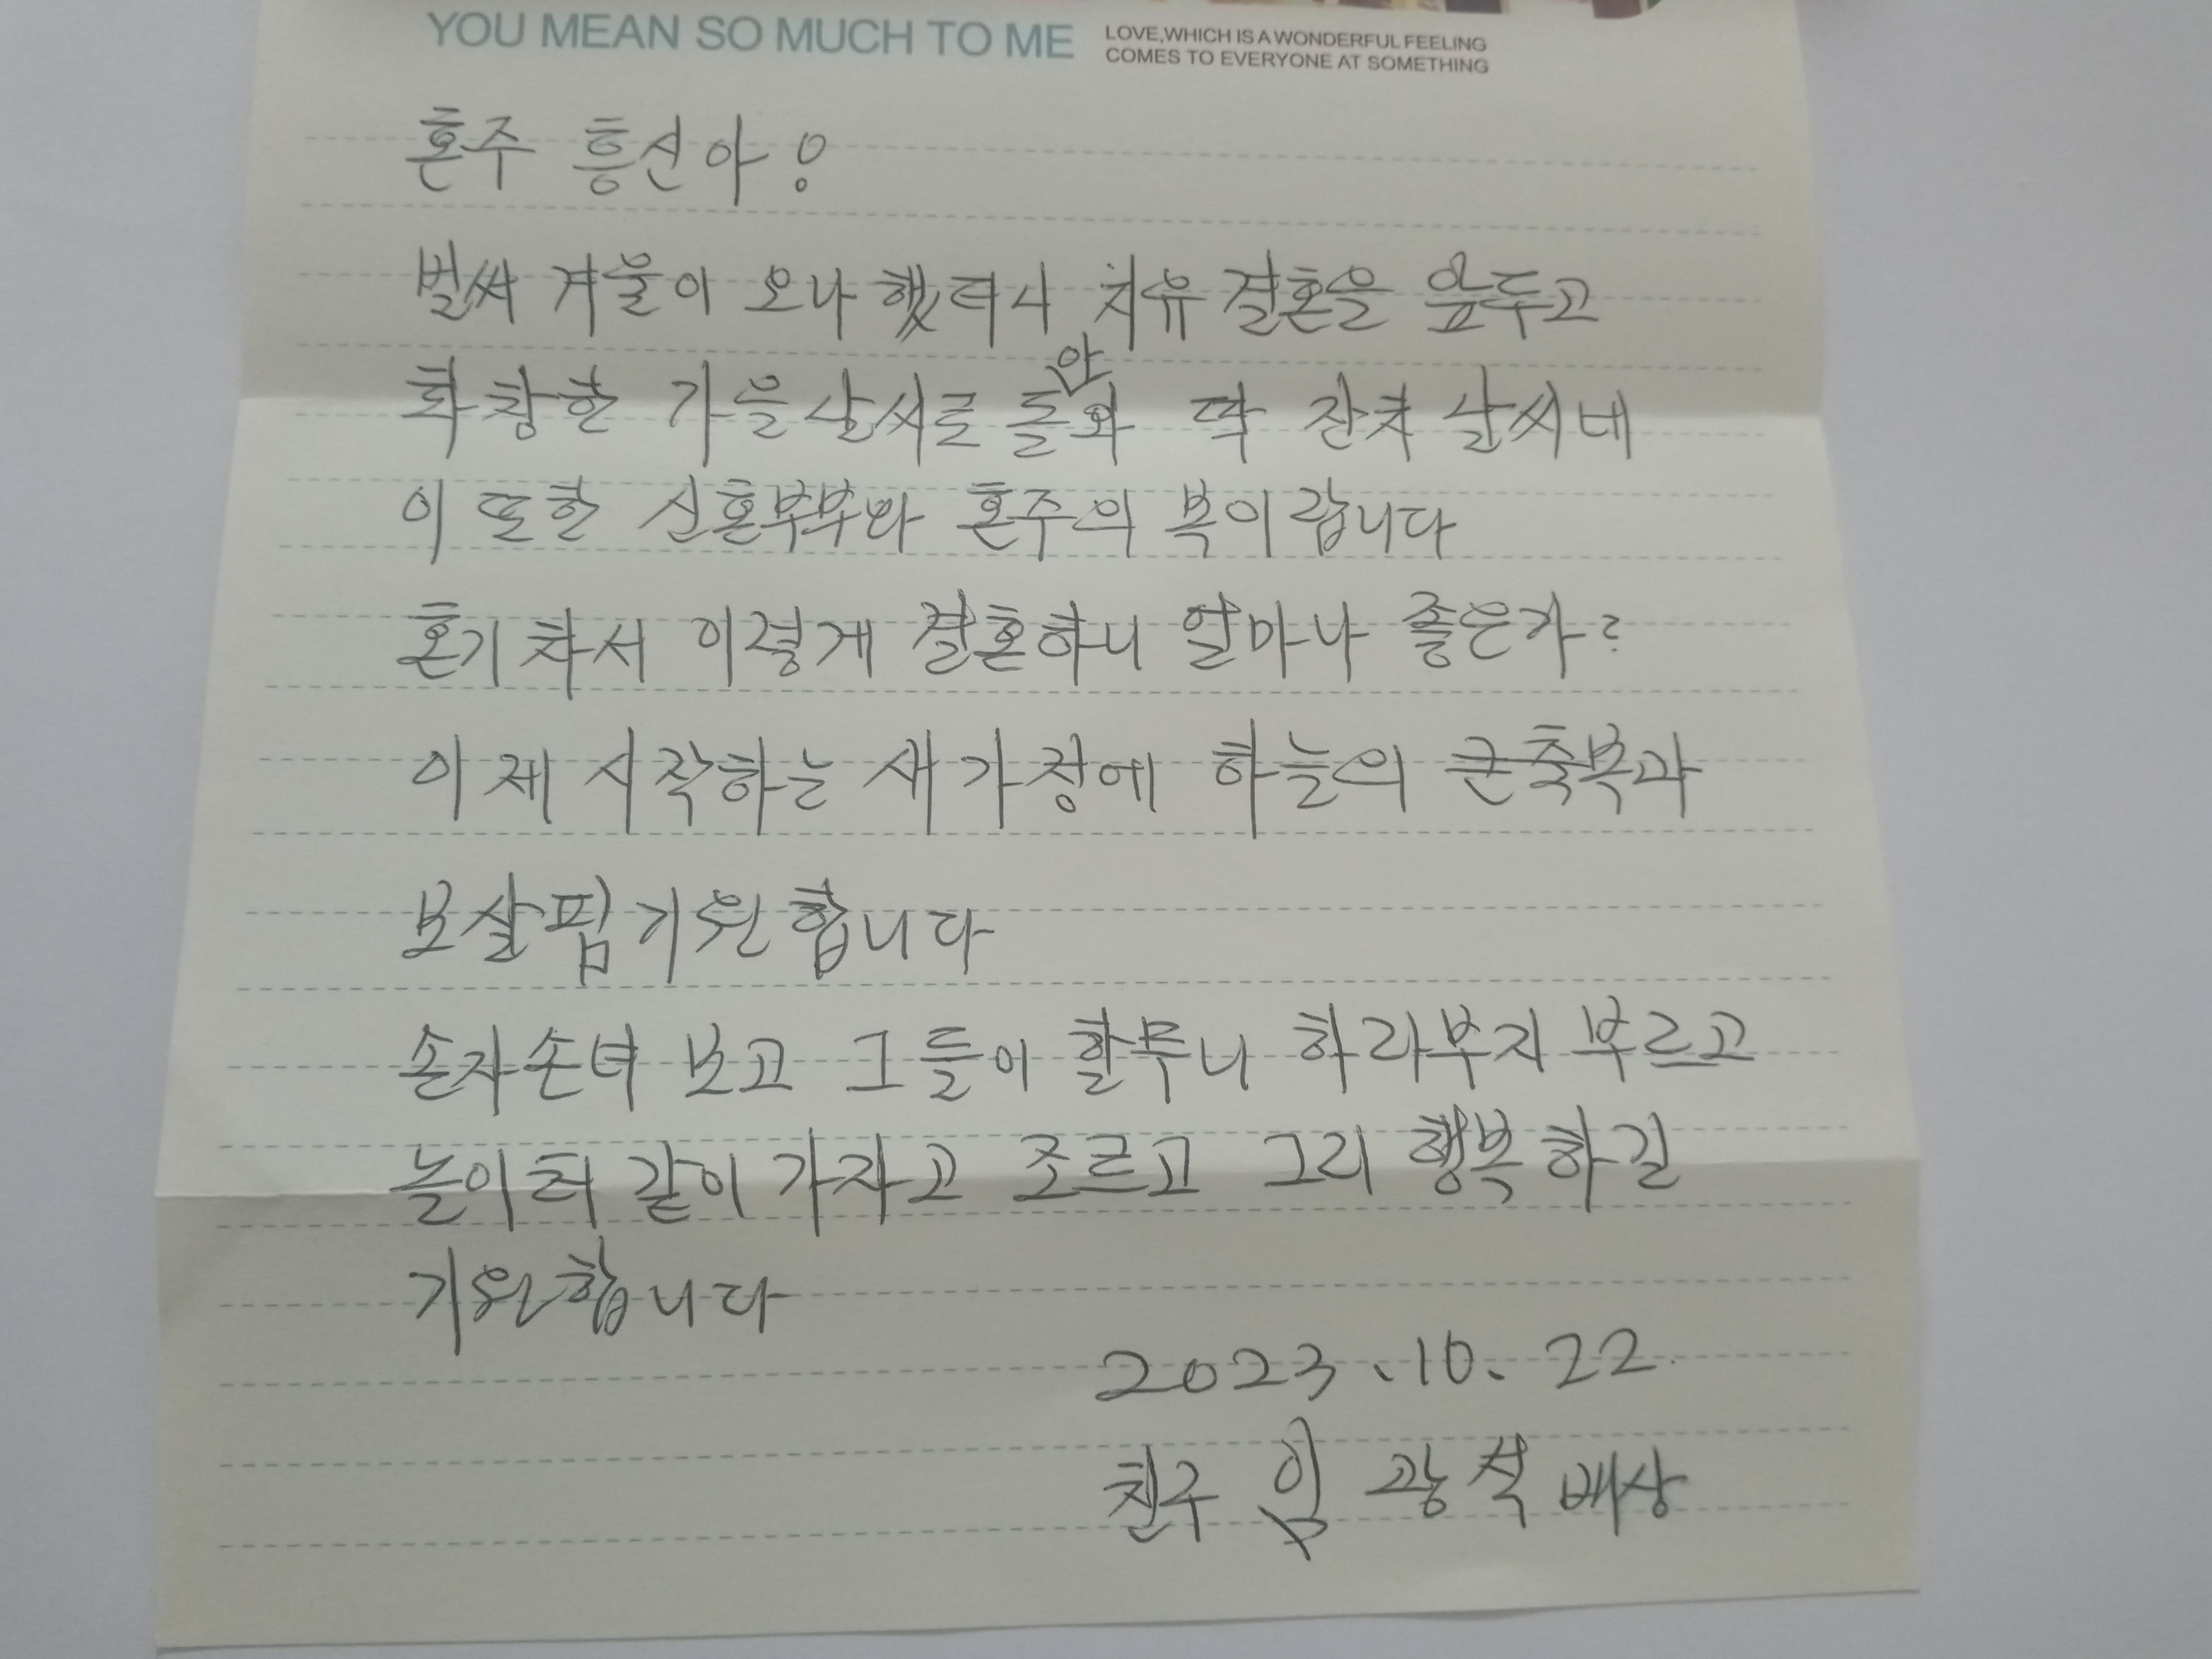 YOU MEAN SO MUCH TO ME
LOVE,WHICH IS A WONDERFUL FEELING
COMES TO EVERYONE AT SOMETHING
혼주 흥신아!
벌써 겨울이 오나 했더니 치유 결혼을 앞두고
화창한 가을날씨로 돌아와 딱 잔치 날씨네
이 또한 신혼부부와 혼주의 복이랍니다
혼기 차서 이렇게 결혼하니 얼마나 좋은가?
이제 시작하는 새가정에 하늘의 큰축복과
보살핌 기원합니다
손자손녀 보고 그들이 할무니 하라부지 부르고
놀이터 같이 가자고 조르고 그리 행복하길
기원합니다
2023.10.22.
친구 광석 배상